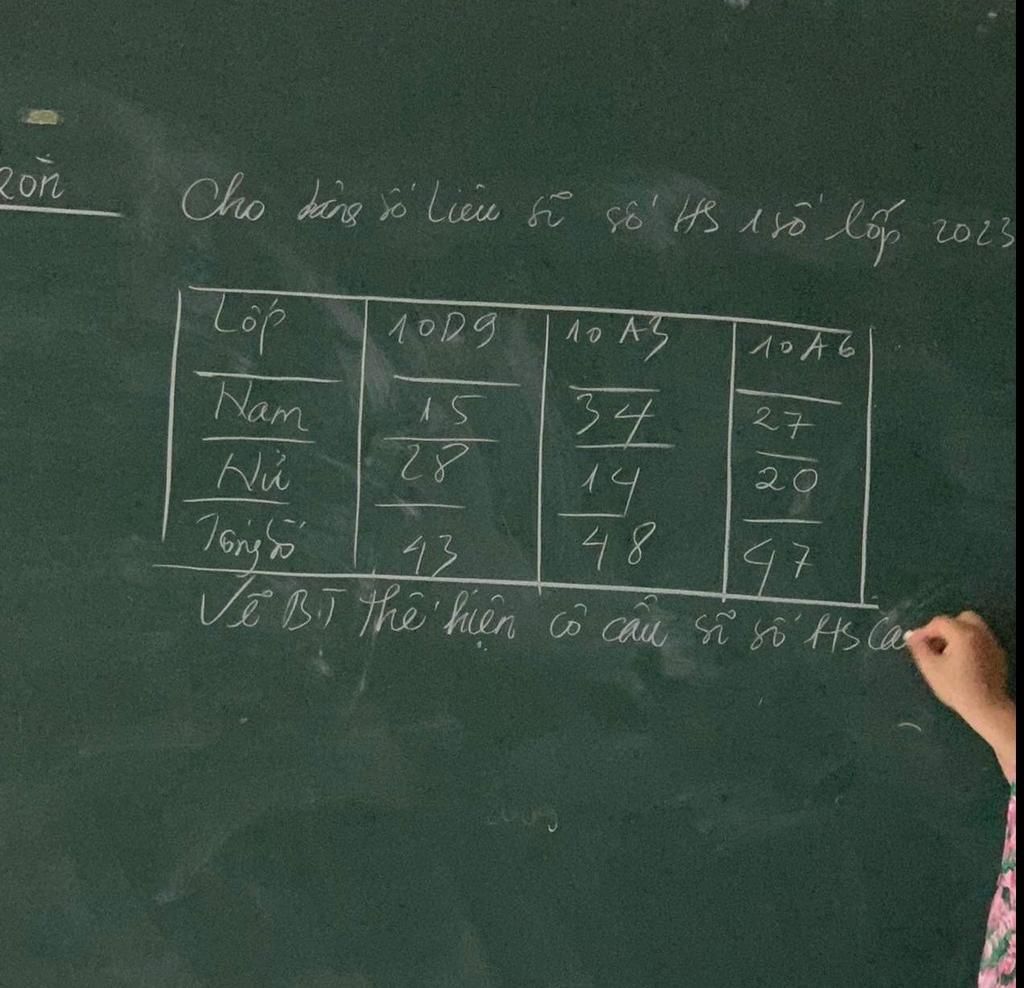 ròn
Cho bảng số liệu sĩ số HS 1 số lớp 2023
Lớp 10D9 10A3 10A6
Nam 15 34 27
Nữ 28 14 20
Tổng số 43 48 47
Vẽ BT thể hiện cơ cấu sĩ số HS Cá